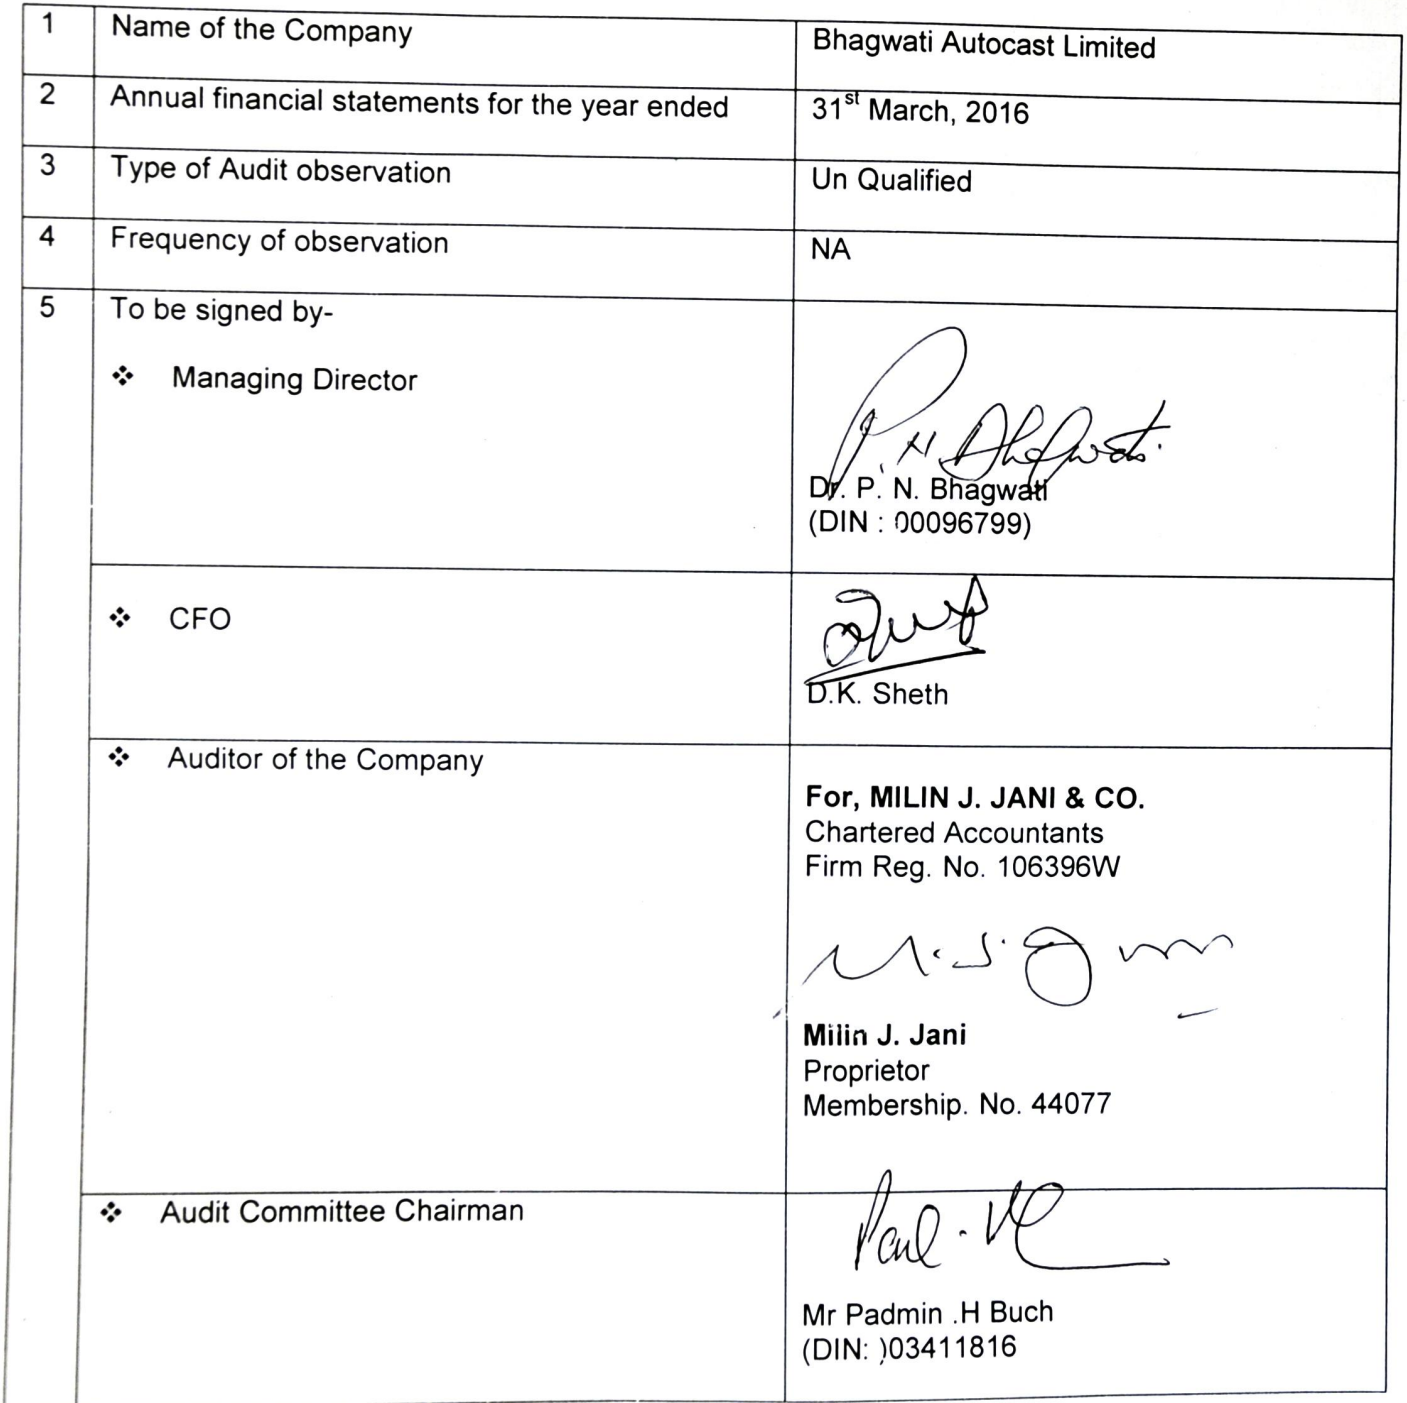 1 Name of the Company Bhagwati Autocast Limited
2 Annual financial statements for the year ended 31st March, 2016
3 Type of Audit observation Un Qualified
4 Frequency of observation NA
5 To be signed by-
❖ Managing Director
P. N. Bhagwati.
Dr. P. N. Bhagwati
(DIN : 00096799)
❖ CFO
D.K. Sheth
❖ Auditor of the Company
For, MILIN J. JANI & CO.
Chartered Accountants
Firm Reg. No. 106396W
M. J. Jani
Milin J. Jani
Proprietor
Membership. No. 44077
❖ Audit Committee Chairman
Mr Padmin .H Buch
(DIN: )03411816